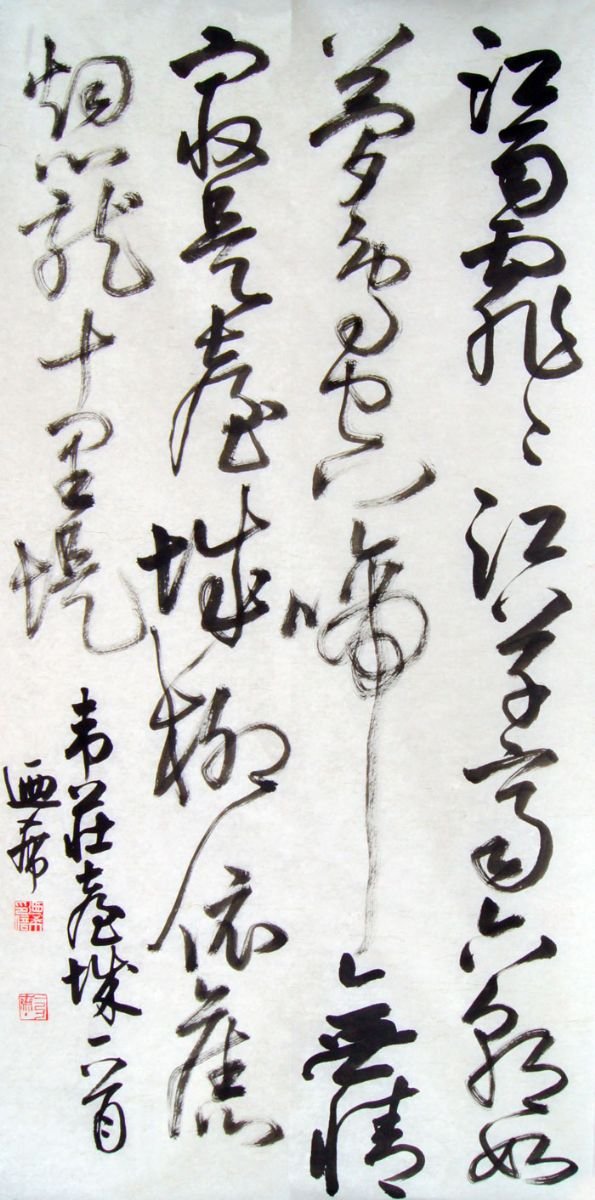 江雨霏々江草齊六朝如
夢鳥空啼無情
最是臺城柳依舊
烟籠十里堤
韦莊臺城一首
迺希